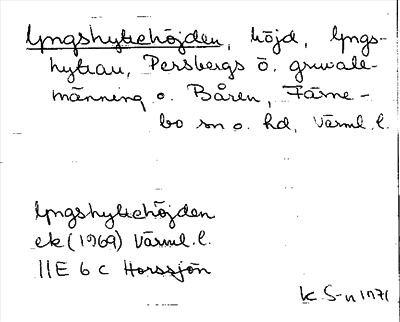 Lyngshyttehöjden, höjd, Lyngs-
hyttan, Persbergs ö. gruvalle-
männing o. Båren, Färne-
bo sn o. hd, Värml. l.
Lyngshyttehöjden
ek (1969) Värml. l.
11E 6 c Horssjön
K. S-n 1971